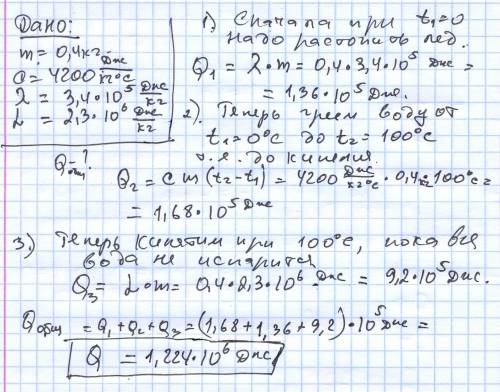 Дано:
m = 0,4 кг
c = 4200 Дж/кг°С
λ = 3,4·10⁵ Дж/кг
L = 2,3·10⁶ Дж/кг
Qобщ - ?
1) Сначала при t₁=0
надо растопить лед.
Q₁ = λ·m = 0,4·3,4·10⁵ Дж =
= 1,36·10⁵ Дж.
2). Теперь греем воду от
t₁=0°С до t₂=100°С
т.е. до кипения.
Q₂ = cm(t₂-t₁) = 4200 Дж/кг°С · 0,4кг·100°С =
= 1,68·10⁵ Дж
3) Теперь кипятим при 100°С, пока вся
вода не испарится
Q₃ = L·m = 0,4·2,3·10⁶ Дж = 9,2·10⁵ Дж.
Qобщ = Q₁+Q₂+Q₃ = (1,68+1,36+9,2)·10⁵ Дж =
Q = 1,224·10⁶ Дж